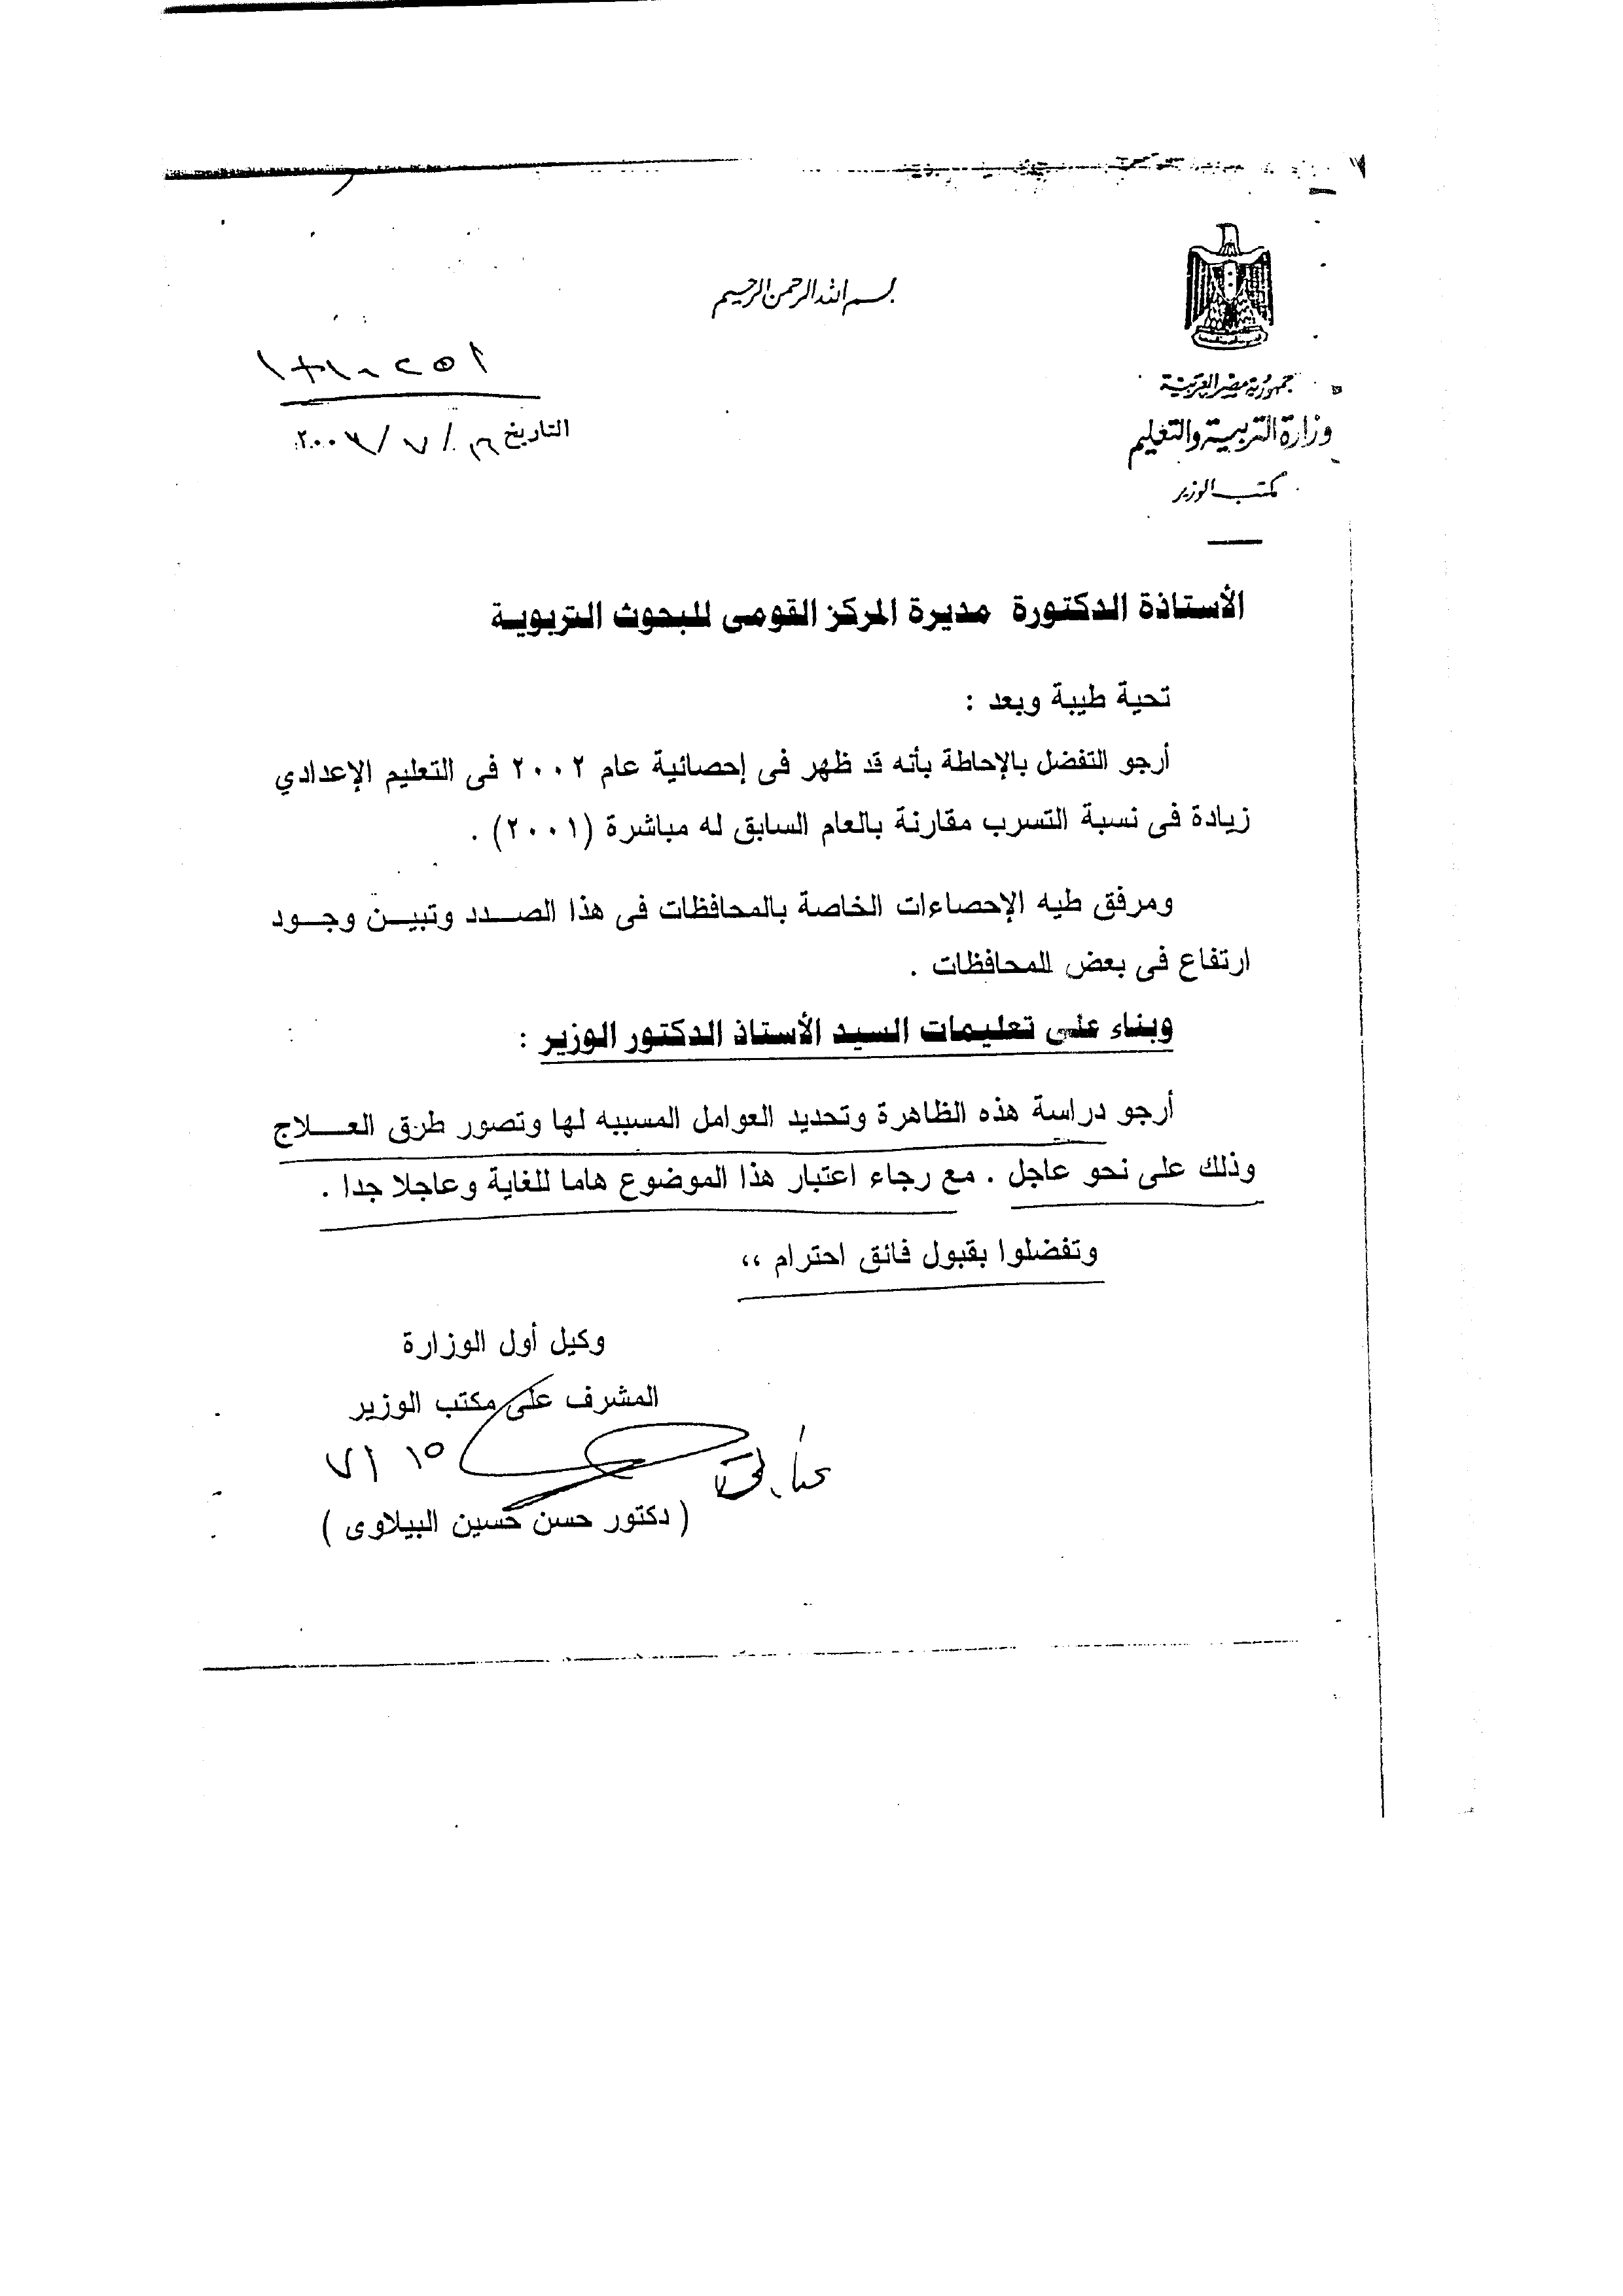 بسم الله الرحمن الرحيم
جمهورية مصر العربية
وزارة التربية والتعليم
مكتب الوزير
التاريخ ١٦ / ٧ / ٢٠٠٣
الأستاذة الدكتورة مديرة المركز القومى للبحوث التربوية
تحية طيبة وبعد :
أرجو التفضل بالإحاطة بأنه قد ظهر فى إحصائية عام ٢٠٠٢ فى التعليم الإعدادي
زيادة فى نسبة التسرب مقارنة بالعام السابق له مباشرة (٢٠٠١) .
ومرفق طيه الإحصاءات الخاصة بالمحافظات فى هذا الصدد وتبين وجود
ارتفاع فى بعض المحافظات .
وبناء على تعليمات السيد الأستاذ الدكتور الوزير :
أرجو دراسة هذه الظاهرة وتحديد العوامل المسببه لها وتصور طرق العلاج
وذلك على نحو عاجل . مع رجاء اعتبار هذا الموضوع هاما للغاية وعاجلا جدا .
وتفضلوا بقبول فائق احترام ،،
وكيل أول الوزارة
المشرف على مكتب الوزير
١٥ / ٧
( دكتور حسن حسين البيلاوى )